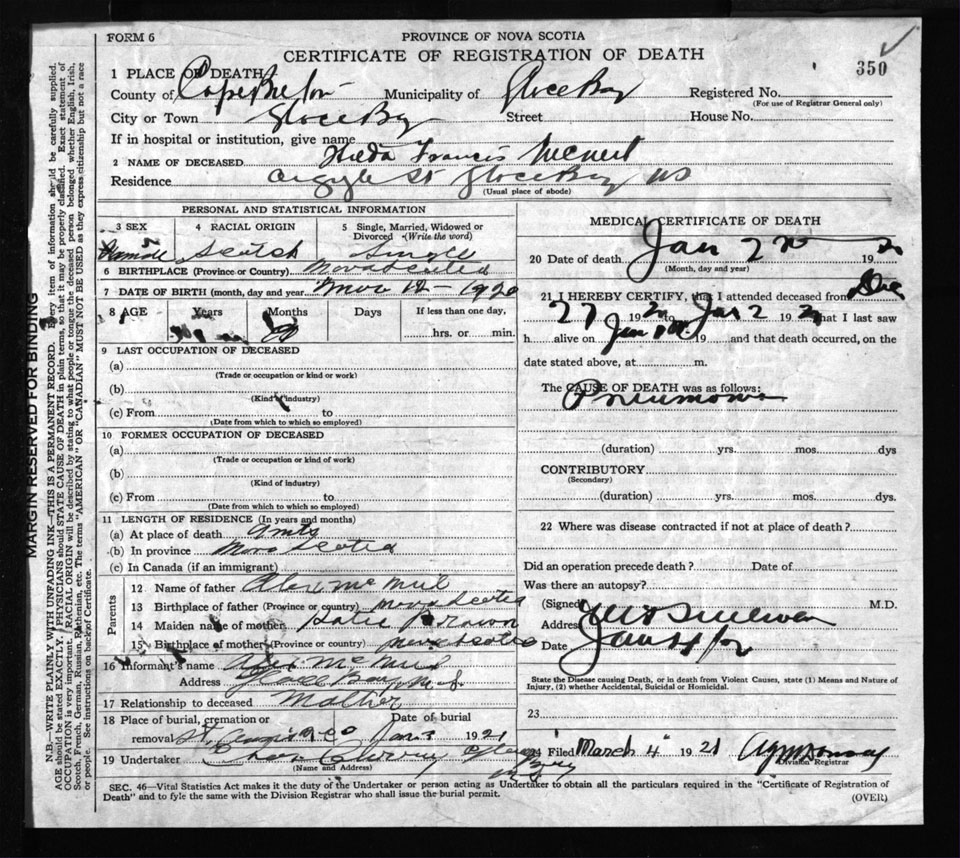 FORM 6
PROVINCE OF NOVA SCOTIA
CERTIFICATE OF REGISTRATION OF DEATH
350
1 PLACE OF DEATH
County of Cape Breton Municipality of Glace Bay Registered No.
(For use of Registrar General only)
City or Town Glace Bay Street House No.
If in hospital or institution, give name
2 NAME OF DECEASED Hilda Francis
Residence Argyle St Glace Bay NS
(Usual place of abode)
PERSONAL AND STATISTICAL INFORMATION
3 SEX 4 RACIAL ORIGIN 5 Single, Married, Widowed or Divorced (Write the word)
Scotch Single
6 BIRTHPLACE (Province or Country) Nova Scotia
7 DATE OF BIRTH (month, day and year Nov 12 - 1920
8 AGE Years Months Days If less than one day,
hrs. or min.
9 LAST OCCUPATION OF DECEASED
(a)
(Trade or occupation or kind or work)
(b)
(Kind of industry)
(c) From to
(Date from which to which so employed)
10 FORMER OCCUPATION OF DECEASED
(a)
(Trade or occupation or kind of work)
(b)
(Kind of industry)
(c) From to
(Date from which to which so employed)
11 LENGTH OF RESIDENCE (In years and months)
(a) At place of death mts
(b) In province Nova Scotia
(c) In Canada (if an immigrant)
Parents
12 Name of father Alex McNeil
13 Birthplace of father (Province or country) Nova Scotia
14 Maiden name of mother Brown
15 Birthplace of mother (Province or country) Nova Scotia
16 Informant's name Alex McNeil
Address Glace Bay N.S.
17 Relationship to deceased Mother
18 Place of burial, cremation or Date of burial
removal St. Jan 3 1921
19 Undertaker
(Name and Address)
MEDICAL CERTIFICATE OF DEATH
20 Date of death Jan 2nd 19
(Month, day and year)
21 I HEREBY CERTIFY, that I attended deceased from Dec
27 19 to Jan 2 19 that I last saw
h alive on Jan 19 and that death occurred, on the
date stated above, at m.
The CAUSE OF DEATH was as follows:
Pneumonia
(duration) yrs. mos. dys
CONTRIBUTORY
(Secondary)
(duration) yrs. mos. dys.
22 Where was disease contracted if not at place of death?
Did an operation precede death? Date of
Was there an autopsy?
(Signed M.D.
Address
Date Jan 4
State the Disease causing Death, or in death from Violent Causes, state (1) Means and Nature of
Injury, (2) whether Accidental, Suicidal or Homicidal.
23
24 Filed March 4 1921
Division Registrar
SEC. 46—Vital Statistics Act makes it the duty of the Undertaker or person acting as Undertaker to obtain all the particulars required in the "Certificate of Registration of
Death" and to fyle the same with the Division Registrar who shall issue the burial permit.
(OVER)
MARGIN RESERVED FOR BINDING
N.B.—WRITE PLAINLY WITH UNFADING INK—THIS IS A PERMANENT RECORD. Every item of information should be carefully supplied.
AGE should be stated EXACTLY. PHYSICIANS should STATE CAUSE OF DEATH in plain terms, so that it may be properly classified. Exact statement of
OCCUPATION is very important. RACIAL ORIGIN will be described by stating to what people or tongue the deceased person belonged whether English, Irish,
Scotch, French, German, Russian, Ruthenian, etc. The terms "AMERICAN" or "CANADIAN" MUST NOT BE USED as they express citizenship but not a race
or people. See instructions on back of Certificate.